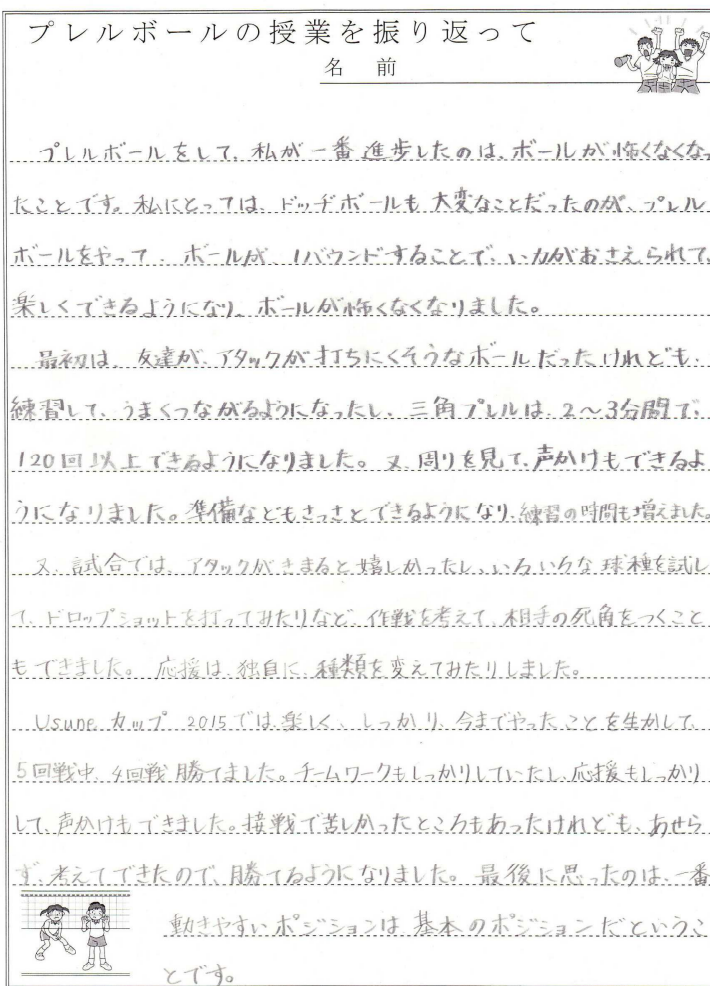 プレルボールの授業を振り返って
名前
プレルボールをして、私が一番進歩したのは、ボールが怖くなくなっ
たことです。私にとっては、ドッヂボールも大変なことだったのが、プレル
ボールをやって、ボールが、1バウンドすることで、い力がおさえられて、
楽しくできるようになり、ボールが怖くなくなりました。
最初は、友達が、アタックが打ちにくそうなボールだったけれども、
練習して、うまくつながるようになったし、三角プレルは、2〜3分間で、
120回以上できるようになりました。又、周りを見て、声かけもできるよ
うになりました。準備などもさっさとできるようになり、練習の時間も増えました。
又、試合では、アタックがきまると嬉しかったし、いろいろな球種を試し
て、ドロップショットを打ってみたりなど、作戦を考えて、相手の死角をつくこと
もできました。応援は、独自に、種類を変えてみたりしました。
Usuneカップ 2015では、楽しく、しっかり、今までやったことを生かして、
5回戦中、4回戦勝てました。チームワークもしっかりしていたし、応援もしっかり
して、声かけもできました。接戦で苦しかったところもあったけれども、あせら
ず、考えてできたので、勝てるようになりました。最後に思ったのは、一番
動きやすいポジションは基本のポジションだというこ
とです。